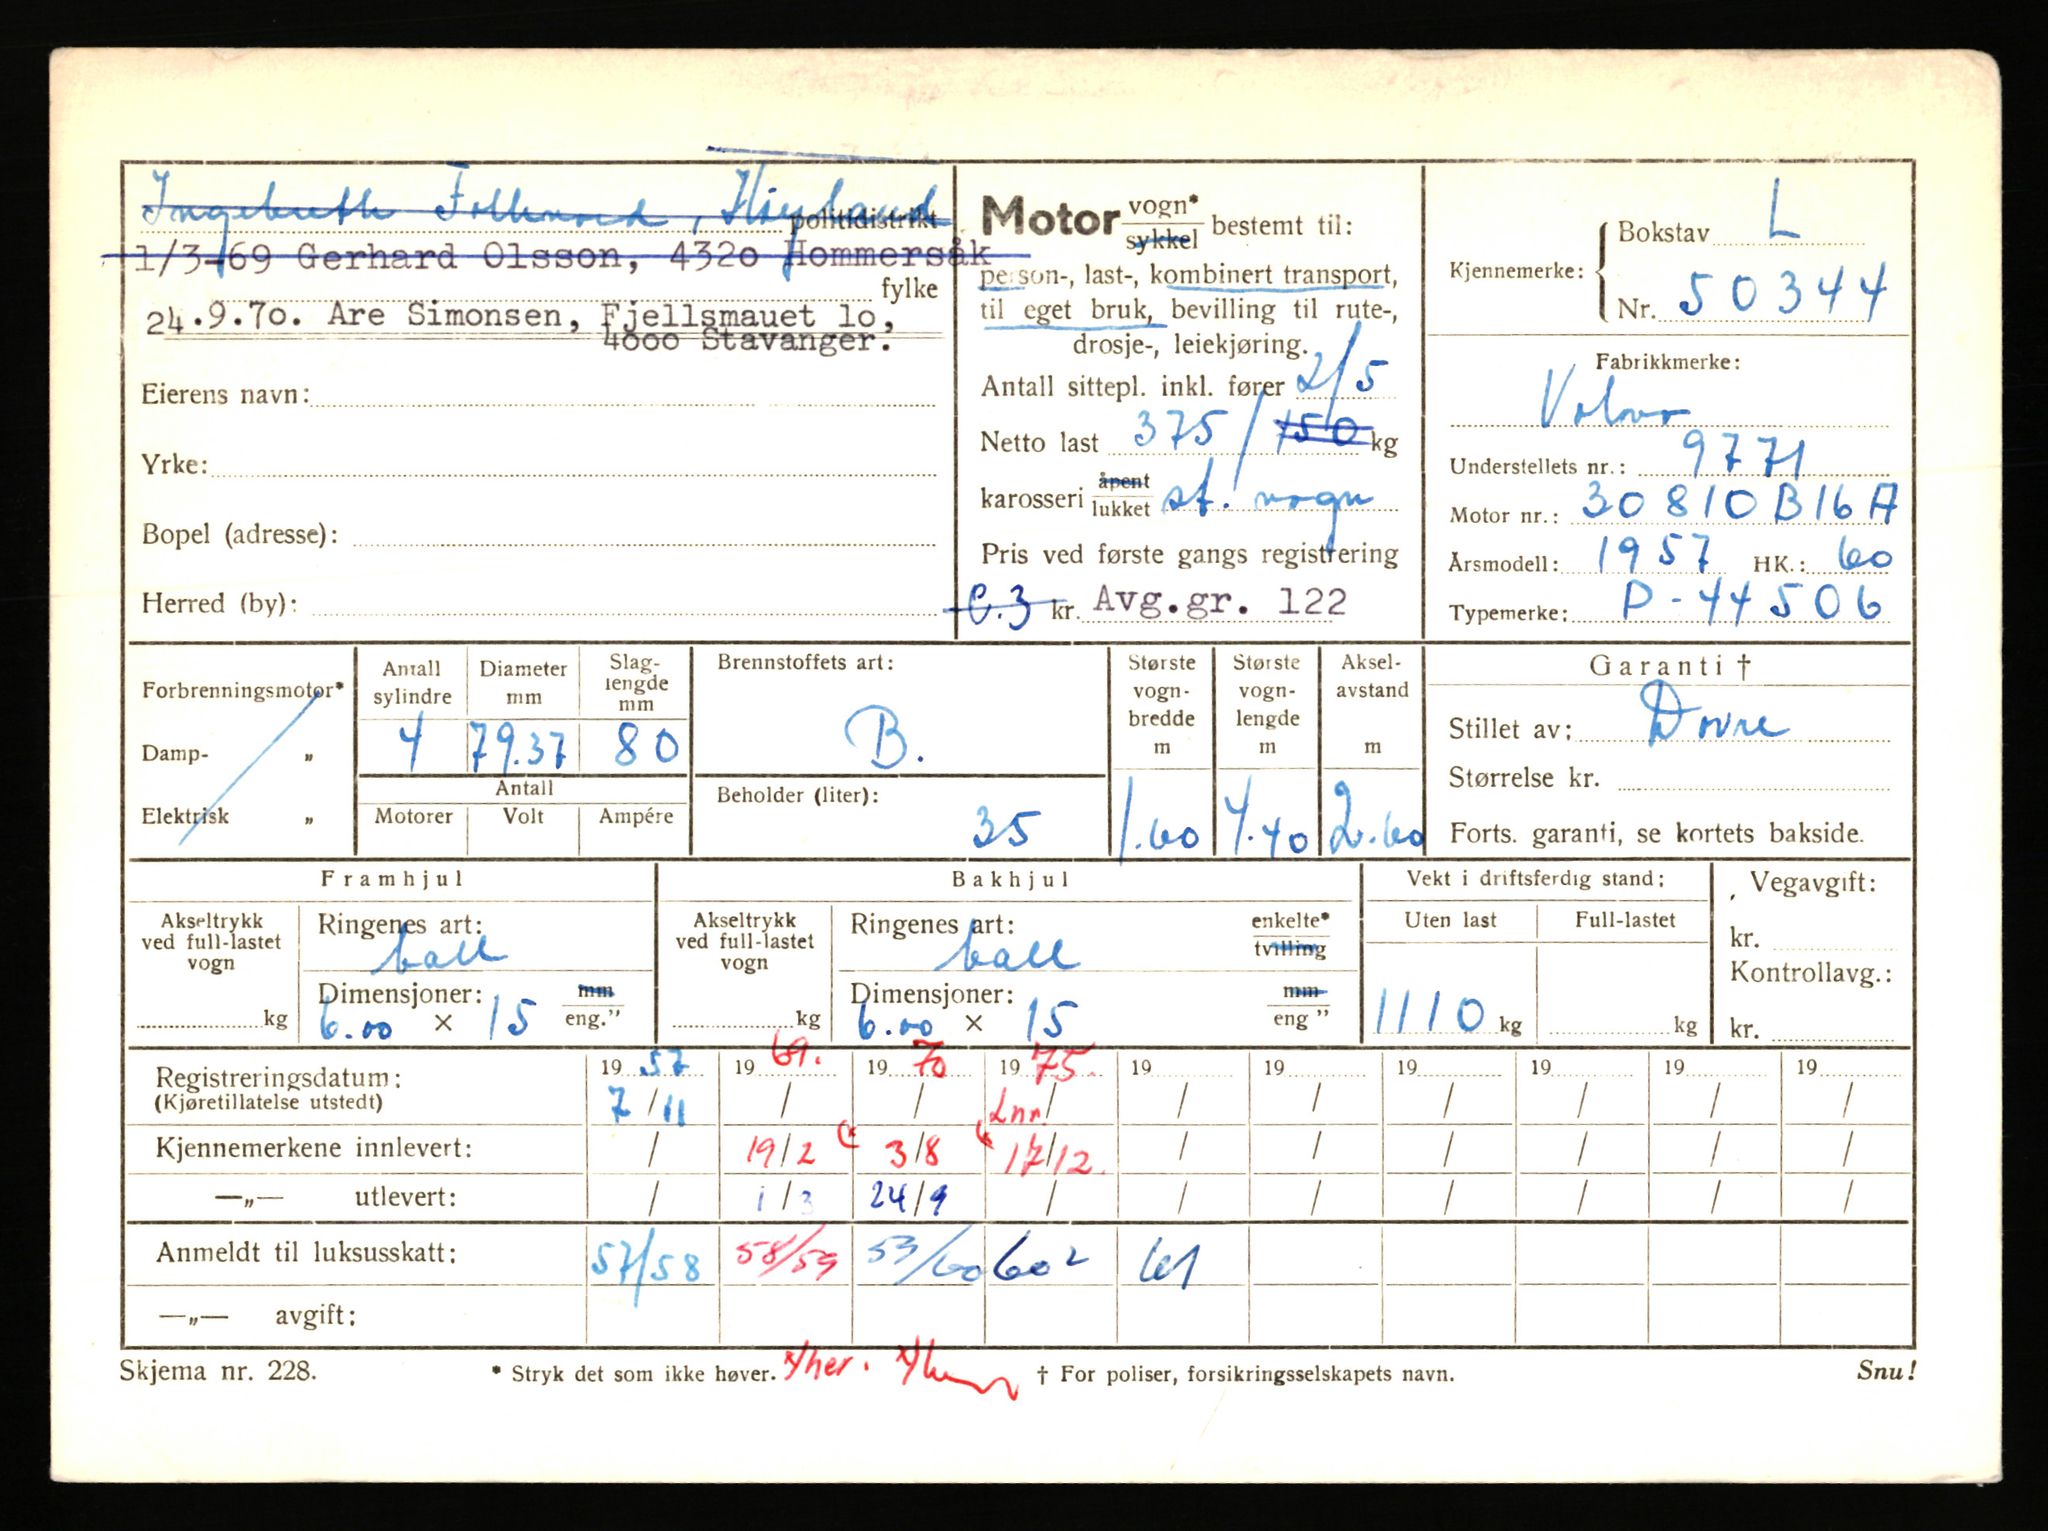 Høyland
politidistrikt
1/3-69 Gerhard Olsson, 4320 Hommersåk
fylke
24.9.70. Are Simonsen, Fjellsmauet 10,
4000 Stavanger.
Eierens navn:
Yrke:
Bopel (adresse):
Herred (by):
Motor vogn* / sykkel bestemt til:
person-, last-, kombinert transport,
til eget bruk, bevilling til rute-,
drosje-, leiekjøring.
Antall sittepl. inkl. fører 2/5
Netto last 375 / 150 kg
karosseri åpent / lukket st. vogn
Pris ved første gangs registrering
C.3 kr. Avg.gr. 122
Kjennemerke: Bokstav L
Nr. 50344
Fabrikkmerke:
Volvo
Understellets nr.: 9771
Motor nr.: 30810 B16A
Årsmodell: 1957 HK.: 60
Typemerke: P-44506
Forbrenningsmotor*
Damp- „
Elektrisk „
Antall sylindre
4
Diameter mm
79.37
Slag-lengde mm
80
Antall
Motorer Volt Ampére
Brennstoffets art:
B.
Beholder (liter):
35
Største vogn-bredde m
1.60
Største vogn-lengde m
4.40
Aksel-avstand m
2.60
Garanti †
Stillet av: Dovre
Størrelse kr.
Forts. garanti, se kortets bakside.
Framhjul
Akseltrykk ved full-lastet vogn
kg
Ringenes art:
ball
Dimensjoner: mm
6.00 × 15 eng."
Bakhjul
Akseltrykk ved full-lastet vogn
kg
Ringenes art: enkelte* / tvilling
ball
Dimensjoner: mm
6.00 × 15 eng "
Vekt i driftsferdig stand:
Uten last Full-lastet
1110 kg kg
Vegavgift:
kr.
Kontrollavg.:
kr.
Registreringsdatum: 19 57 19 69. 19 70 19 75. 19 19 19 19 19 19
(Kjøretillatelse utstedt) 7/11 / / Lnr. / / / / / / /
Kjennemerkene innlevert: / 19/2 (x 3/8 (x 17/12. / / / / / /
—„— utlevert: / 1/3 24/9 / / / / / / /
Anmeldt til luksusskatt: 57/58 58/59 53/60 602 61
—„— avgift:
Skjema nr. 228. * Stryk det som ikke høver. x/her. † For poliser, forsikringsselskapets navn. Snu!